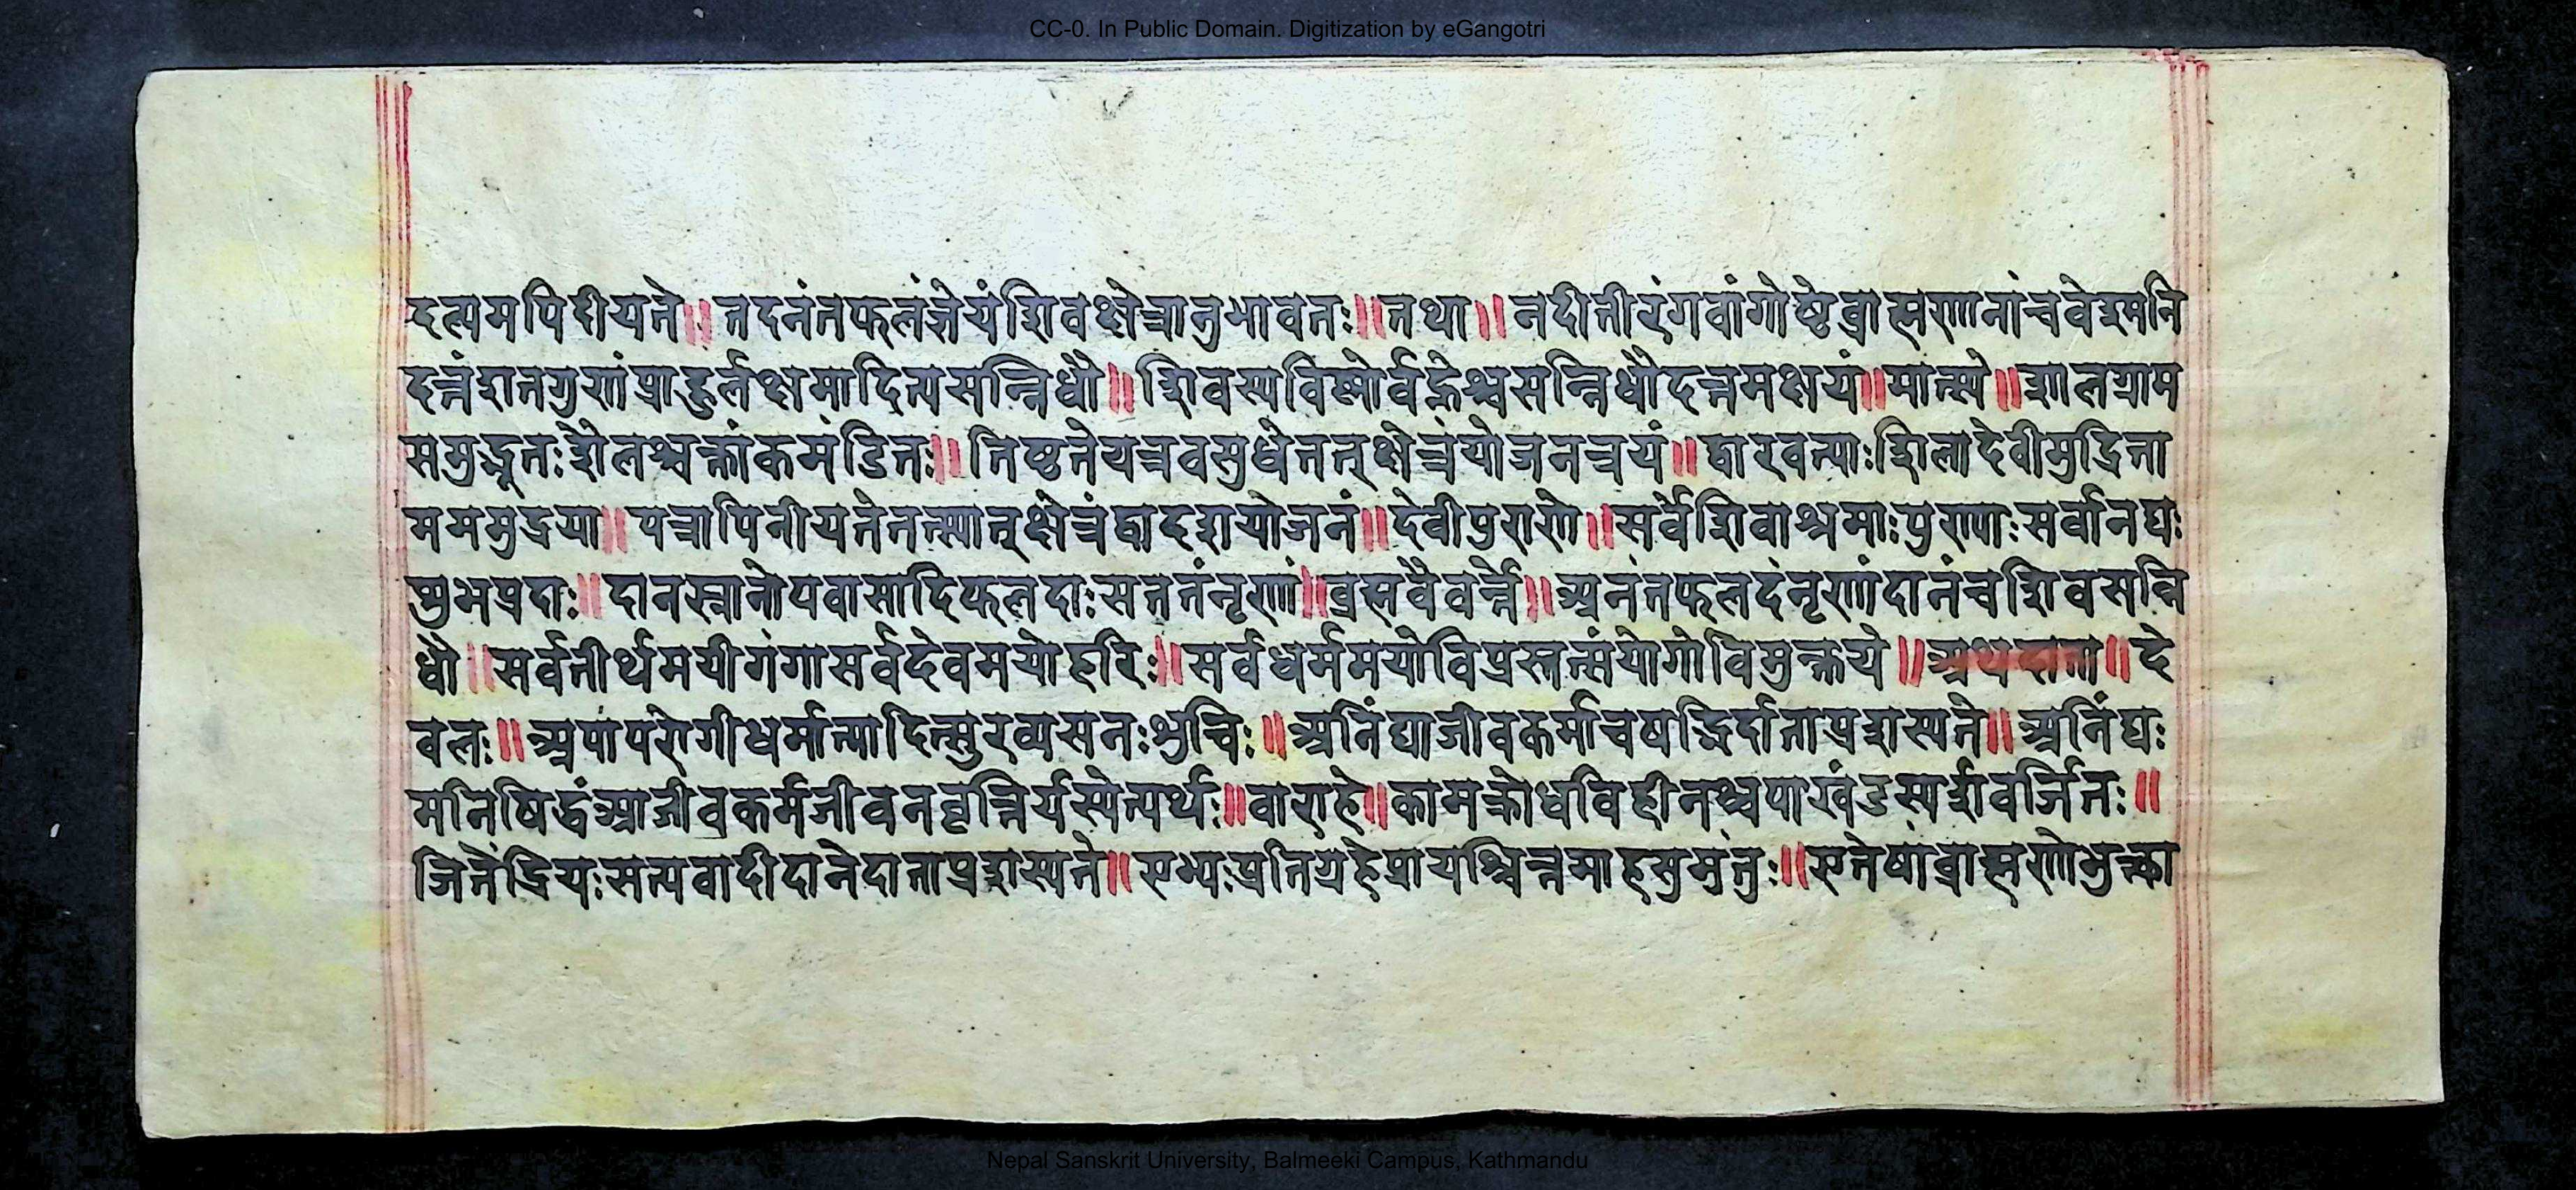 CC-0. In Public Domain. Digitization by eGangotri
दल्पमपिदीयते॥ तदनंतफलंज्ञेयंशिवक्षेत्रानुभावतः॥तथा॥ नदीतीरंगवांगोष्ठेब्राह्मणानांचवेश्मनि
दत्तंशतगुणंप्राहुर्लक्षमादित्यसन्निधौ॥ शिवस्यविष्णोर्वह्नेश्चसन्निधौदत्तमक्षयं॥मात्स्ये॥शालग्राम
समुद्भूतःशैलश्चक्रांकमंडितः॥ तिष्ठतेयत्रवसुधेतत्क्षेत्रंयोजनत्रयं॥ द्वारवत्याःशिलादेवीमुद्रिता
मममुद्रया॥ यत्रापिनीयतेतत्स्यात्क्षेत्रंद्वादशयोजनं॥ देवीपुराणे॥सर्वेशिवाश्रमाःपुण्याःसर्वानद्यः
शुभप्रदाः॥ दानस्नानोपवासादिफलदाःसततंनृणां॥ब्रह्मवैवर्त्ते॥ अनंतफलदंनृणांदानंचशिवसन्नि
धौ॥सर्वतीर्थमयीगंगासर्वदेवमयोहरिः॥सर्वधर्ममयोविप्रस्तत्संयोगोविमुक्तये॥अथदाता॥ दे
वलः॥ अपापरोगीधर्मात्मादित्सुरव्यसनःशुचिः॥ अनिंद्याजीवकर्माचषड्भिर्दाताप्रशस्यते॥ अनिंद्यः
मनिषिद्धंआजीवकर्मजीवनवृत्तिर्यस्येत्यर्थः॥वाराहे॥कामक्रोधविहीनश्चपाखंडस्पर्शवर्जितः॥
जितेंद्रियःसत्यवादीदानेदाताप्रशस्यते॥ एभ्यःप्रतिग्रहेप्रायश्चित्तमाहसुमंतुः॥एतेषांब्राह्मणोभुक्त्वा
Nepal Sanskrit University, Balmeeki Campus, Kathmandu